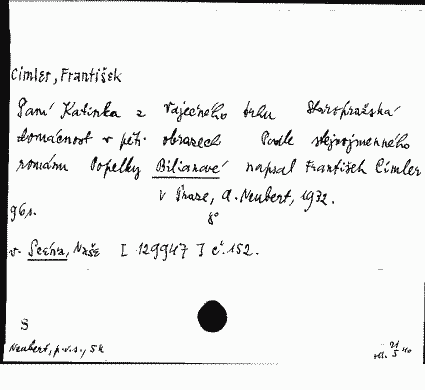 Cimler, František
Paní Katinka z Vaječného trhu Staropražská
domácnost v pěti obrazech Podle stejnojmenného
románu Popelky Bilianové napsal František Cimler
V Praze, A. Neubert, 1932.
96 s. 8°
v. Scéna, Naše [ 129947 ] č. 152.
S
Neubert, p.v.s., 5 k
21
5 40